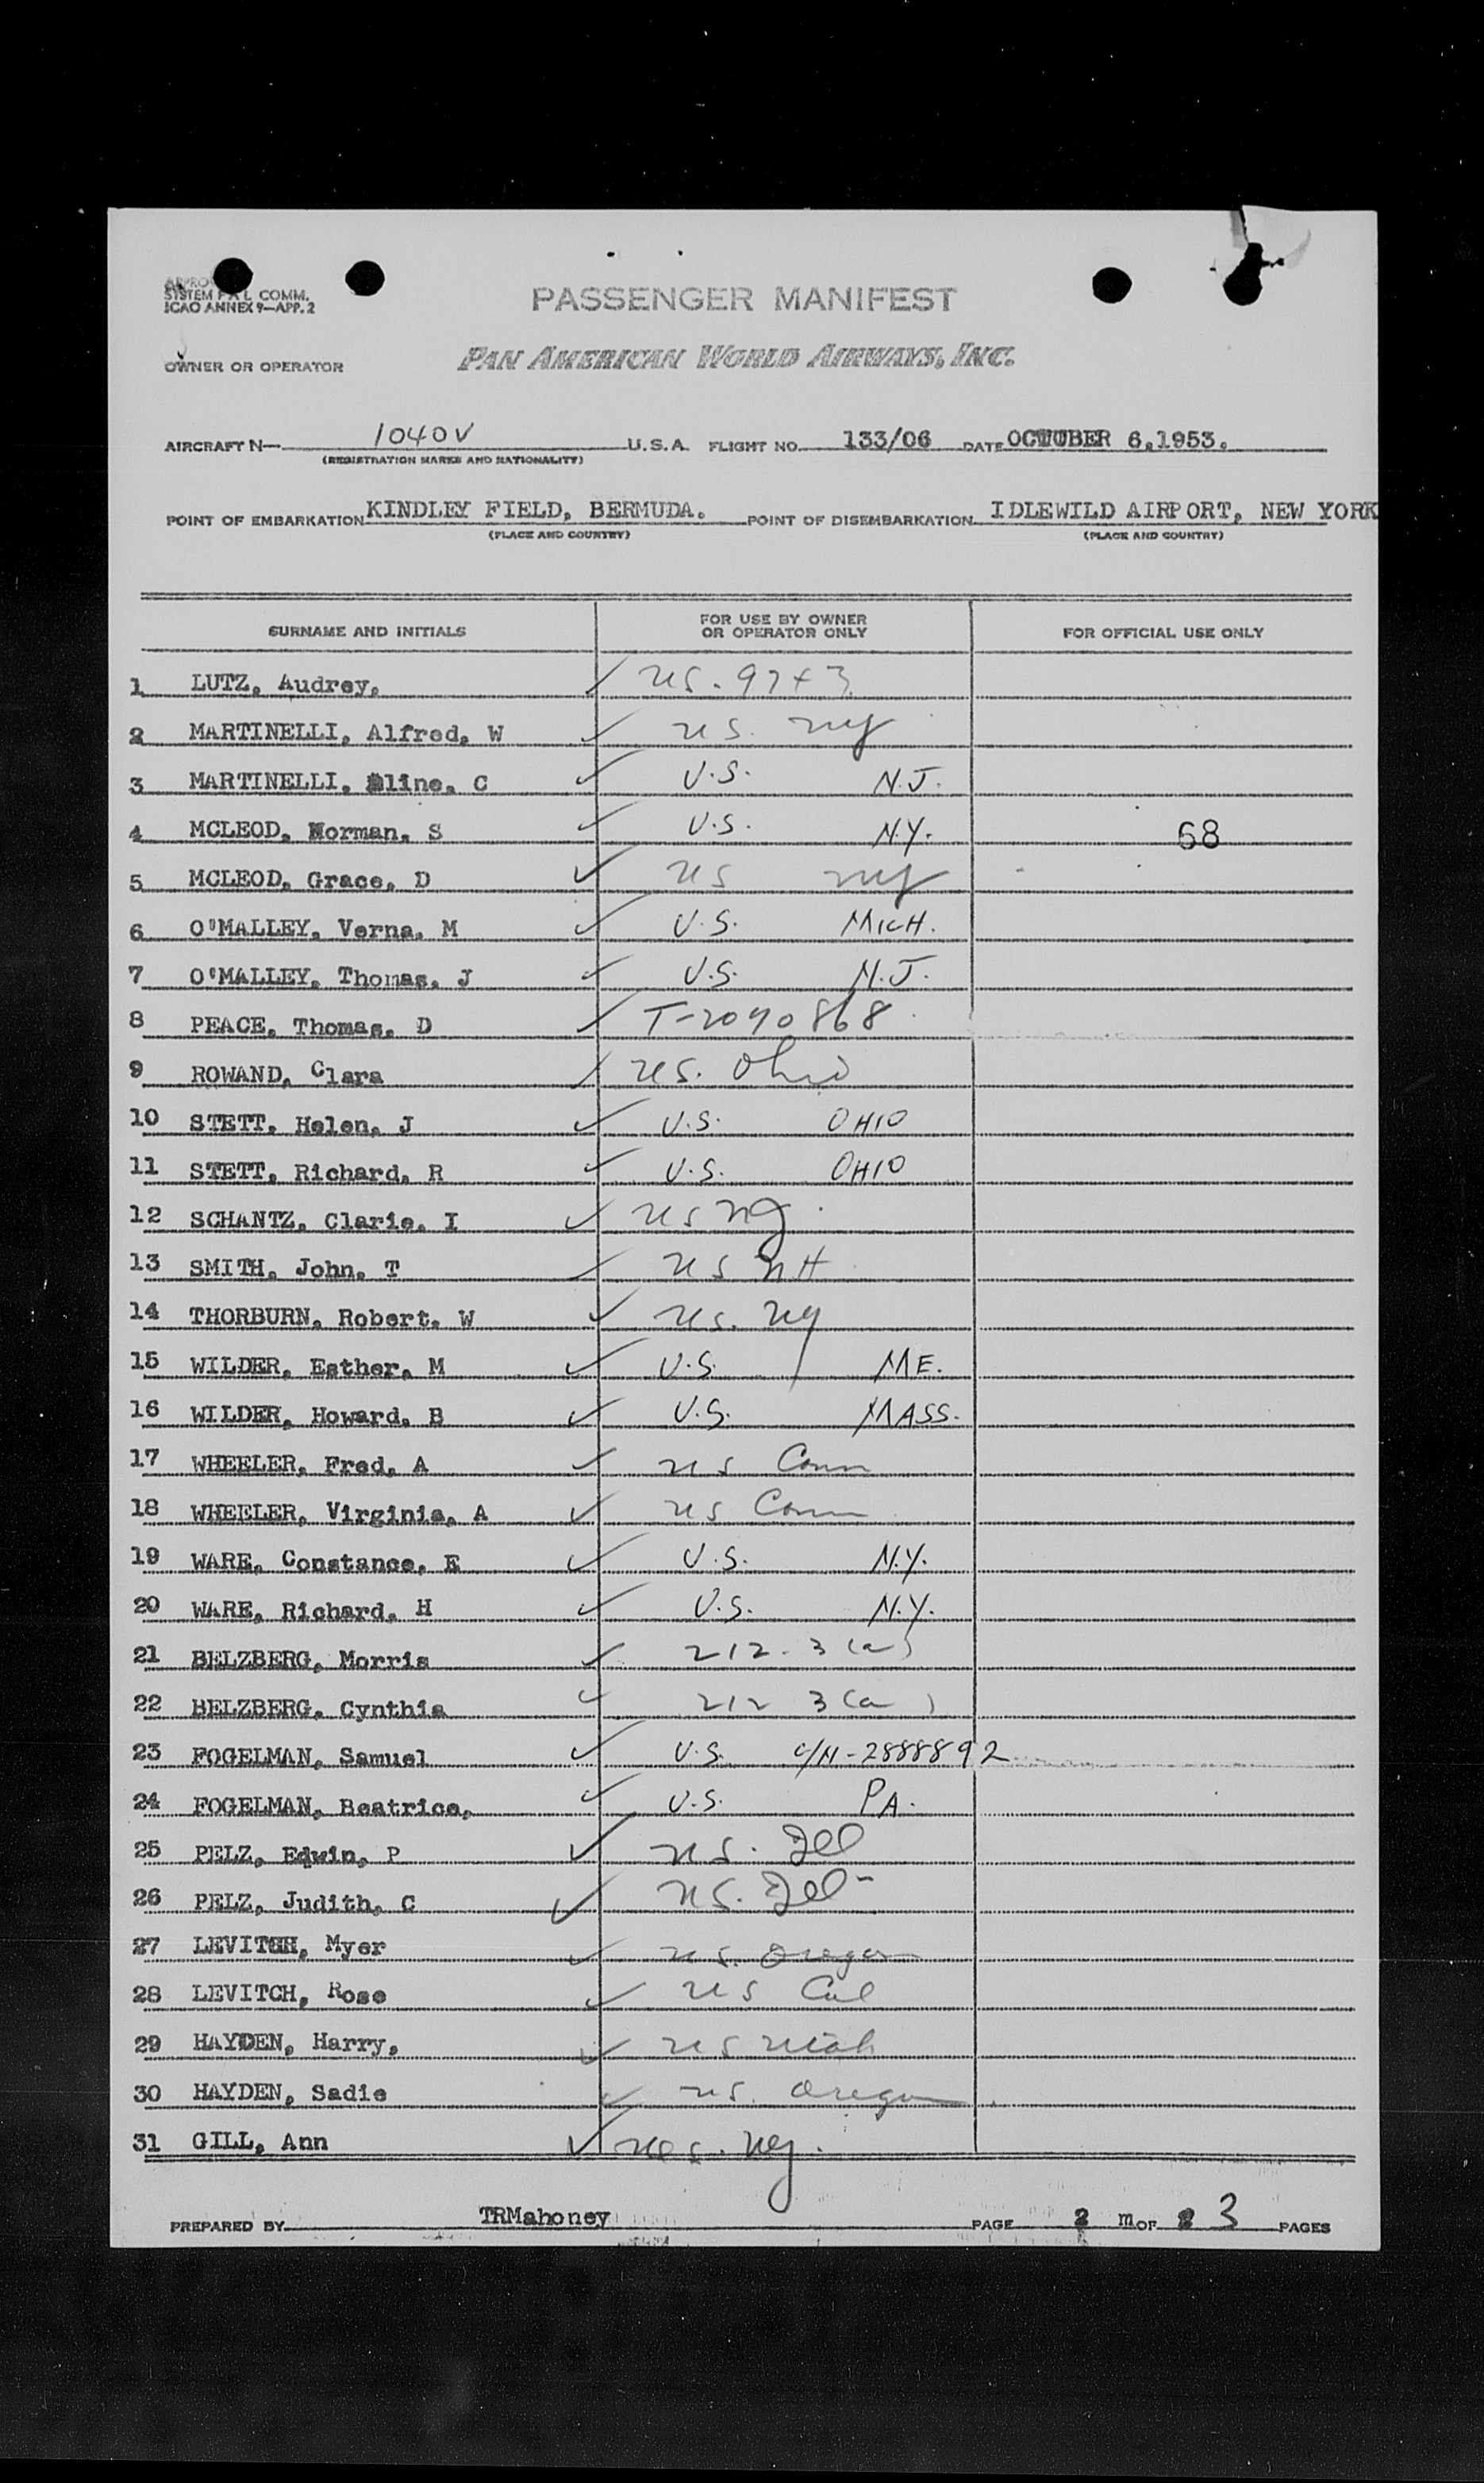 SYSTEM F A L COMM.
ICAO ANNEX 9—APP. 2
PASSENGER MANIFEST
OWNER OR OPERATOR PAN AMERICAN WORLD AIRWAYS, INC.
AIRCRAFT N— 1040V U.S.A. FLIGHT NO. 133/06 DATE OCTOBER 6,1953.
(REGISTRATION MARKS AND NATIONALITY)
POINT OF EMBARKATION KINDLEY FIELD, BERMUDA. POINT OF DISEMBARKATION IDLEWILD AIRPORT, NEW YORK
(PLACE AND COUNTRY) (PLACE AND COUNTRY)
SURNAME AND INITIALS FOR USE BY OWNER OR OPERATOR ONLY FOR OFFICIAL USE ONLY
1 LUTZ, Audrey, ✓ US.
2 MARTINELLI, Alfred, W ✓ US. NY
3 MARTINELLI, Aline, C ✓ U.S. N.J.
4 MCLEOD, Norman, S ✓ U.S. N.Y. 68
5 MCLEOD, Grace, D ✓ US NY
6 O'MALLEY, Verna, M ✓ U.S. MICH.
7 O'MALLEY, Thomas, J ✓ U.S. N.J.
8 PEACE, Thomas, D ✓ T-2090868
9 ROWAND, Clara ✓ US. Ohio
10 STETT, Helen, J ✓ U.S. OHIO
11 STETT, Richard, R ✓ U.S. OHIO
12 SCHANTZ, Clarie, I ✓ US NJ
13 SMITH, John, T ✓ US NH
14 THORBURN, Robert, W ✓ US. NY
15 WILDER, Esther, M ✓ U.S. ME.
16 WILDER, Howard, B ✓ U.S. MASS.
17 WHEELER, Fred, A ✓ US Conn
18 WHEELER, Virginia, A ✓ US Conn
19 WARE, Constance, E ✓ U.S. N.Y.
20 WARE, Richard, H ✓ U.S. N.Y.
21 BELZBERG, Morris ✓ 212-3(a)
22 BELZBERG, Cynthia ✓ 212 3(a)
23 FOGELMAN, Samuel ✓ U.S. C/N-2888892
24 FOGELMAN, Beatrice, ✓ U.S. PA.
25 PELZ, Edwin, P ✓ US. Ill
26 PELZ, Judith, C ✓ US. Ill
27 LEVITCH, Myer ✓ US. Oregon
28 LEVITCH, Rose ✓ US Cal
29 HAYDEN, Harry, ✓ US Utah
30 HAYDEN, Sadie ✓ US. Oregon
31 GILL, Ann ✓ US. NY.
PREPARED BY TRMahoney PAGE 2 OF 3 PAGES